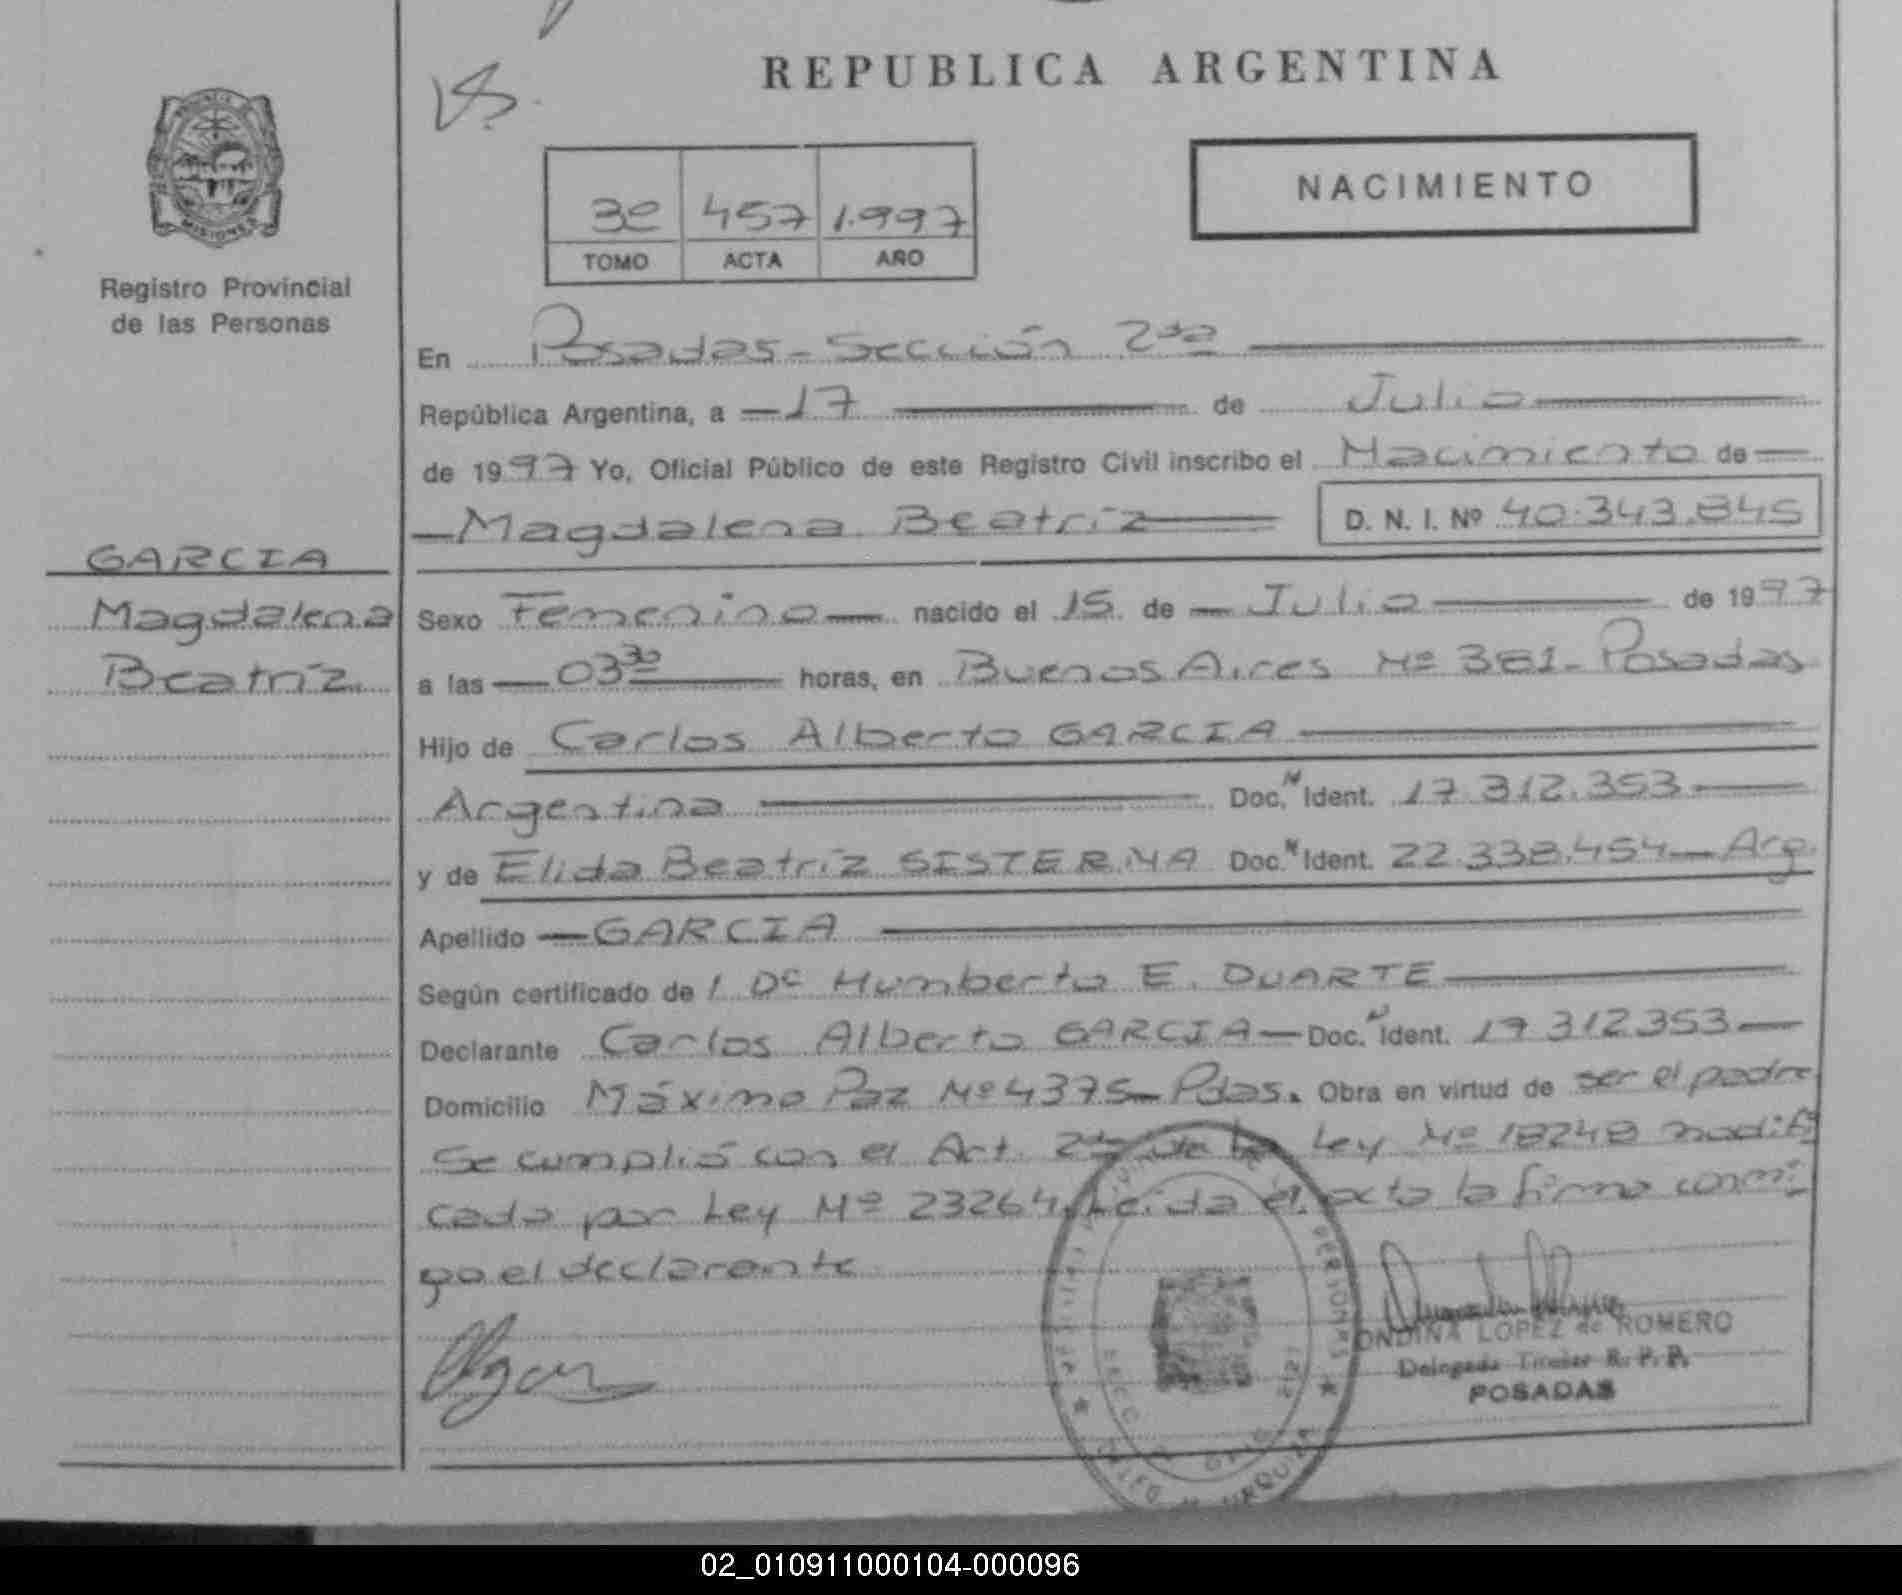 REPUBLICA ARGENTINA
MISIONES
Registro Provincial
de las Personas
NACIMIENTO
3º 457 1.997
TOMO ACTA AÑO
En Posadas - Sección 2da
República Argentina, a 17 de Julio
de 1997 Yo, Oficial Público de este Registro Civil inscribo el Nacimiento de
Magdalena Beatríz D. N. I. Nº 40.343.845
GARCIA
Magdalena
Beatríz
Sexo Femenino nacido el 15 de Julio de 1997
a las 03 30 horas, en Buenos Aires Nº 381 - Posadas
Hijo de Carlos Alberto GARCIA
Argentina Doc. N Ident. 17.312.353
y de Elida Beatríz SISTERNA Doc. N Ident. 22.338.454 - Arg.
Apellido GARCIA
Según certificado de Humberto E. DUARTE
Declarante Carlos Alberto GARCIA - Doc. N Ident. 17.312.353
Domicilio Máximo Paz Nº 4375 - Pdas. Obra en virtud de ser el padre
Se cumplió con el Art. 2do de la Ley Nº 18248 modifi
cado por Ley Nº 23264. Leída el acta la firma conmi
go el declarante
ONDINA LOPEZ de ROMERO
Delegada Titular R. P. P.
POSADAS
02_010911000104-000096